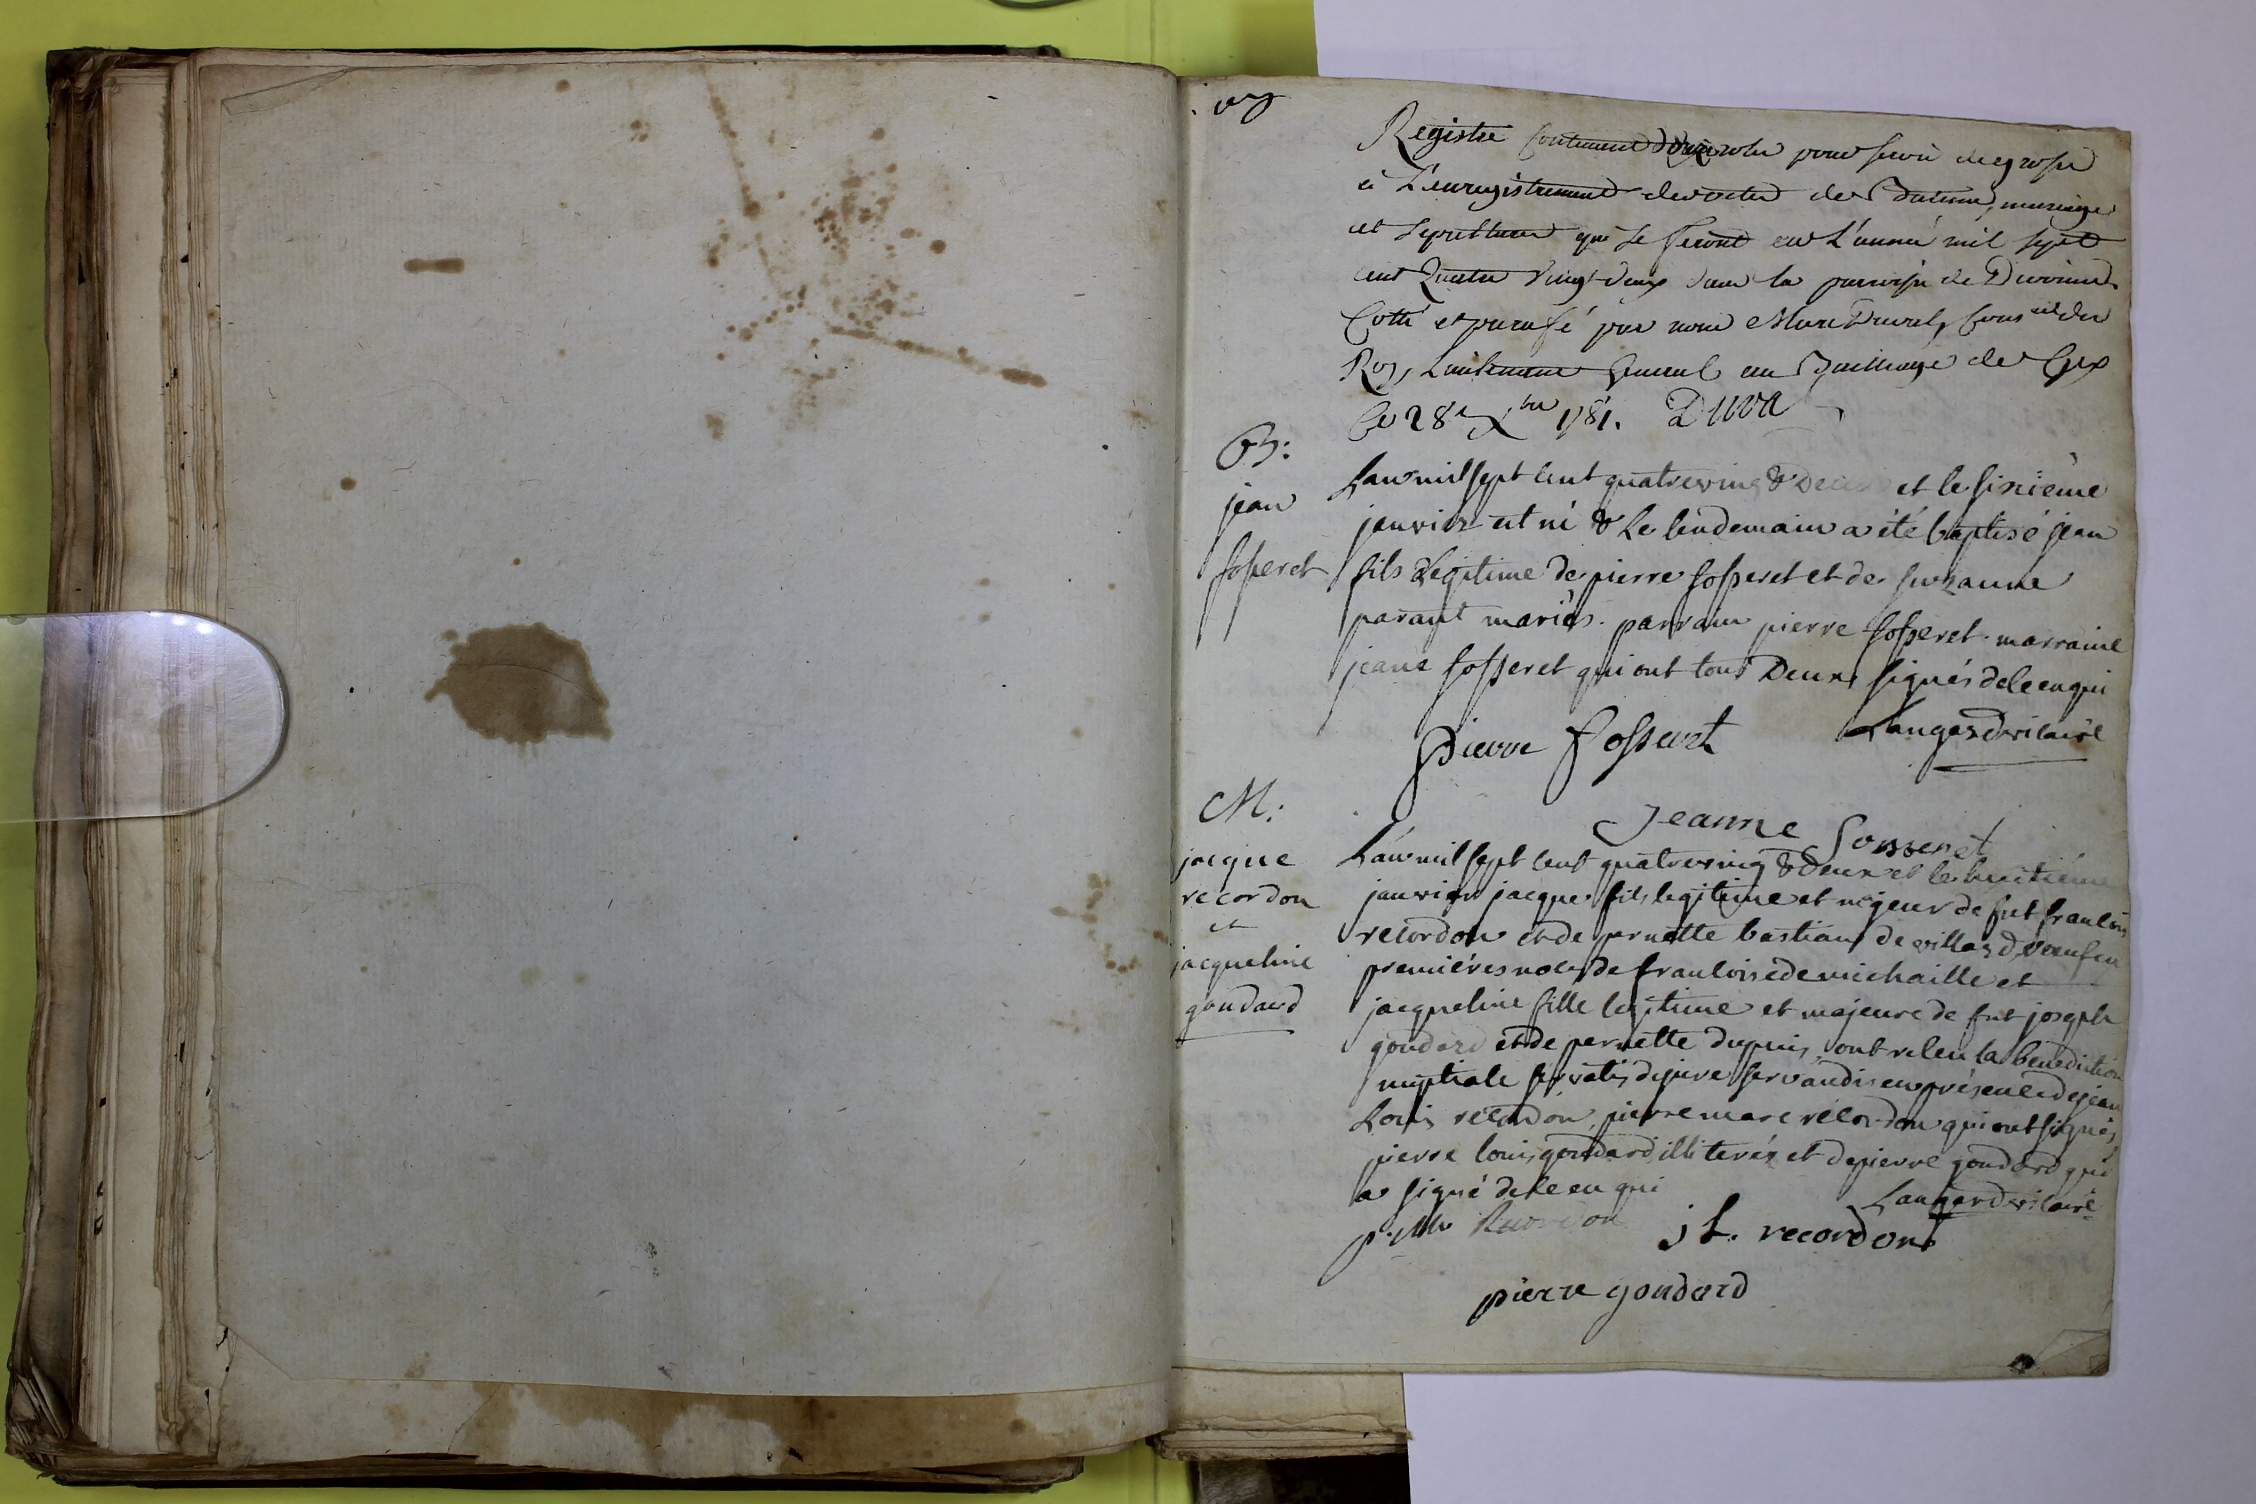 Registre contenant douze roles pour servir de grosse
à L'enregistrement des actes de Batême, mariage
et Sepultures qui se feront en L'année mil sept
cent Quatre vingt deux dans la paroisse de Divonne
Cotté et parafé par nous Marc Duval, Cons.er du
Roy, Lieutenant General au Bailliage de Gex
Ce 28e Xbre 1781. Duval
B:
jean
fosseret
L'an mil sept cent quatrevingt & Deux et le sixième
janvier est né & Le lendemain a été baptisé jean
fils Légitime de pierre fosseret et de suzanne
parant mariés. parrain pierre fosseret. marraine
jeane fosseret qui ont tous Deux signés de ce enqui
Pierre fosseret Langard vicaire
Jeanne fosseret
M:
jacque
recordon
et
jacqueline
goudard
L'an mil sept cent quatreving & deux et le huitième
janvier jacque fils legitime et majeur de fut francois
recordon et de pernette bastian de villard, veuf en
premières noces de francoise de michaille et
jacqueline fille legitime et majeure de fut joseph
goudard et de pernette dupuis, ont receu la benediction
nuptiale servatis de jure servandis en présence de jean
Louis recordon, pierre marc recordon qui ont signés,
pierre louis goudard illiterés et de pierre goudard qui
a signé de ce en qui Langard vicaire
p. Mc Recordon j L. recordon
pierre goudard